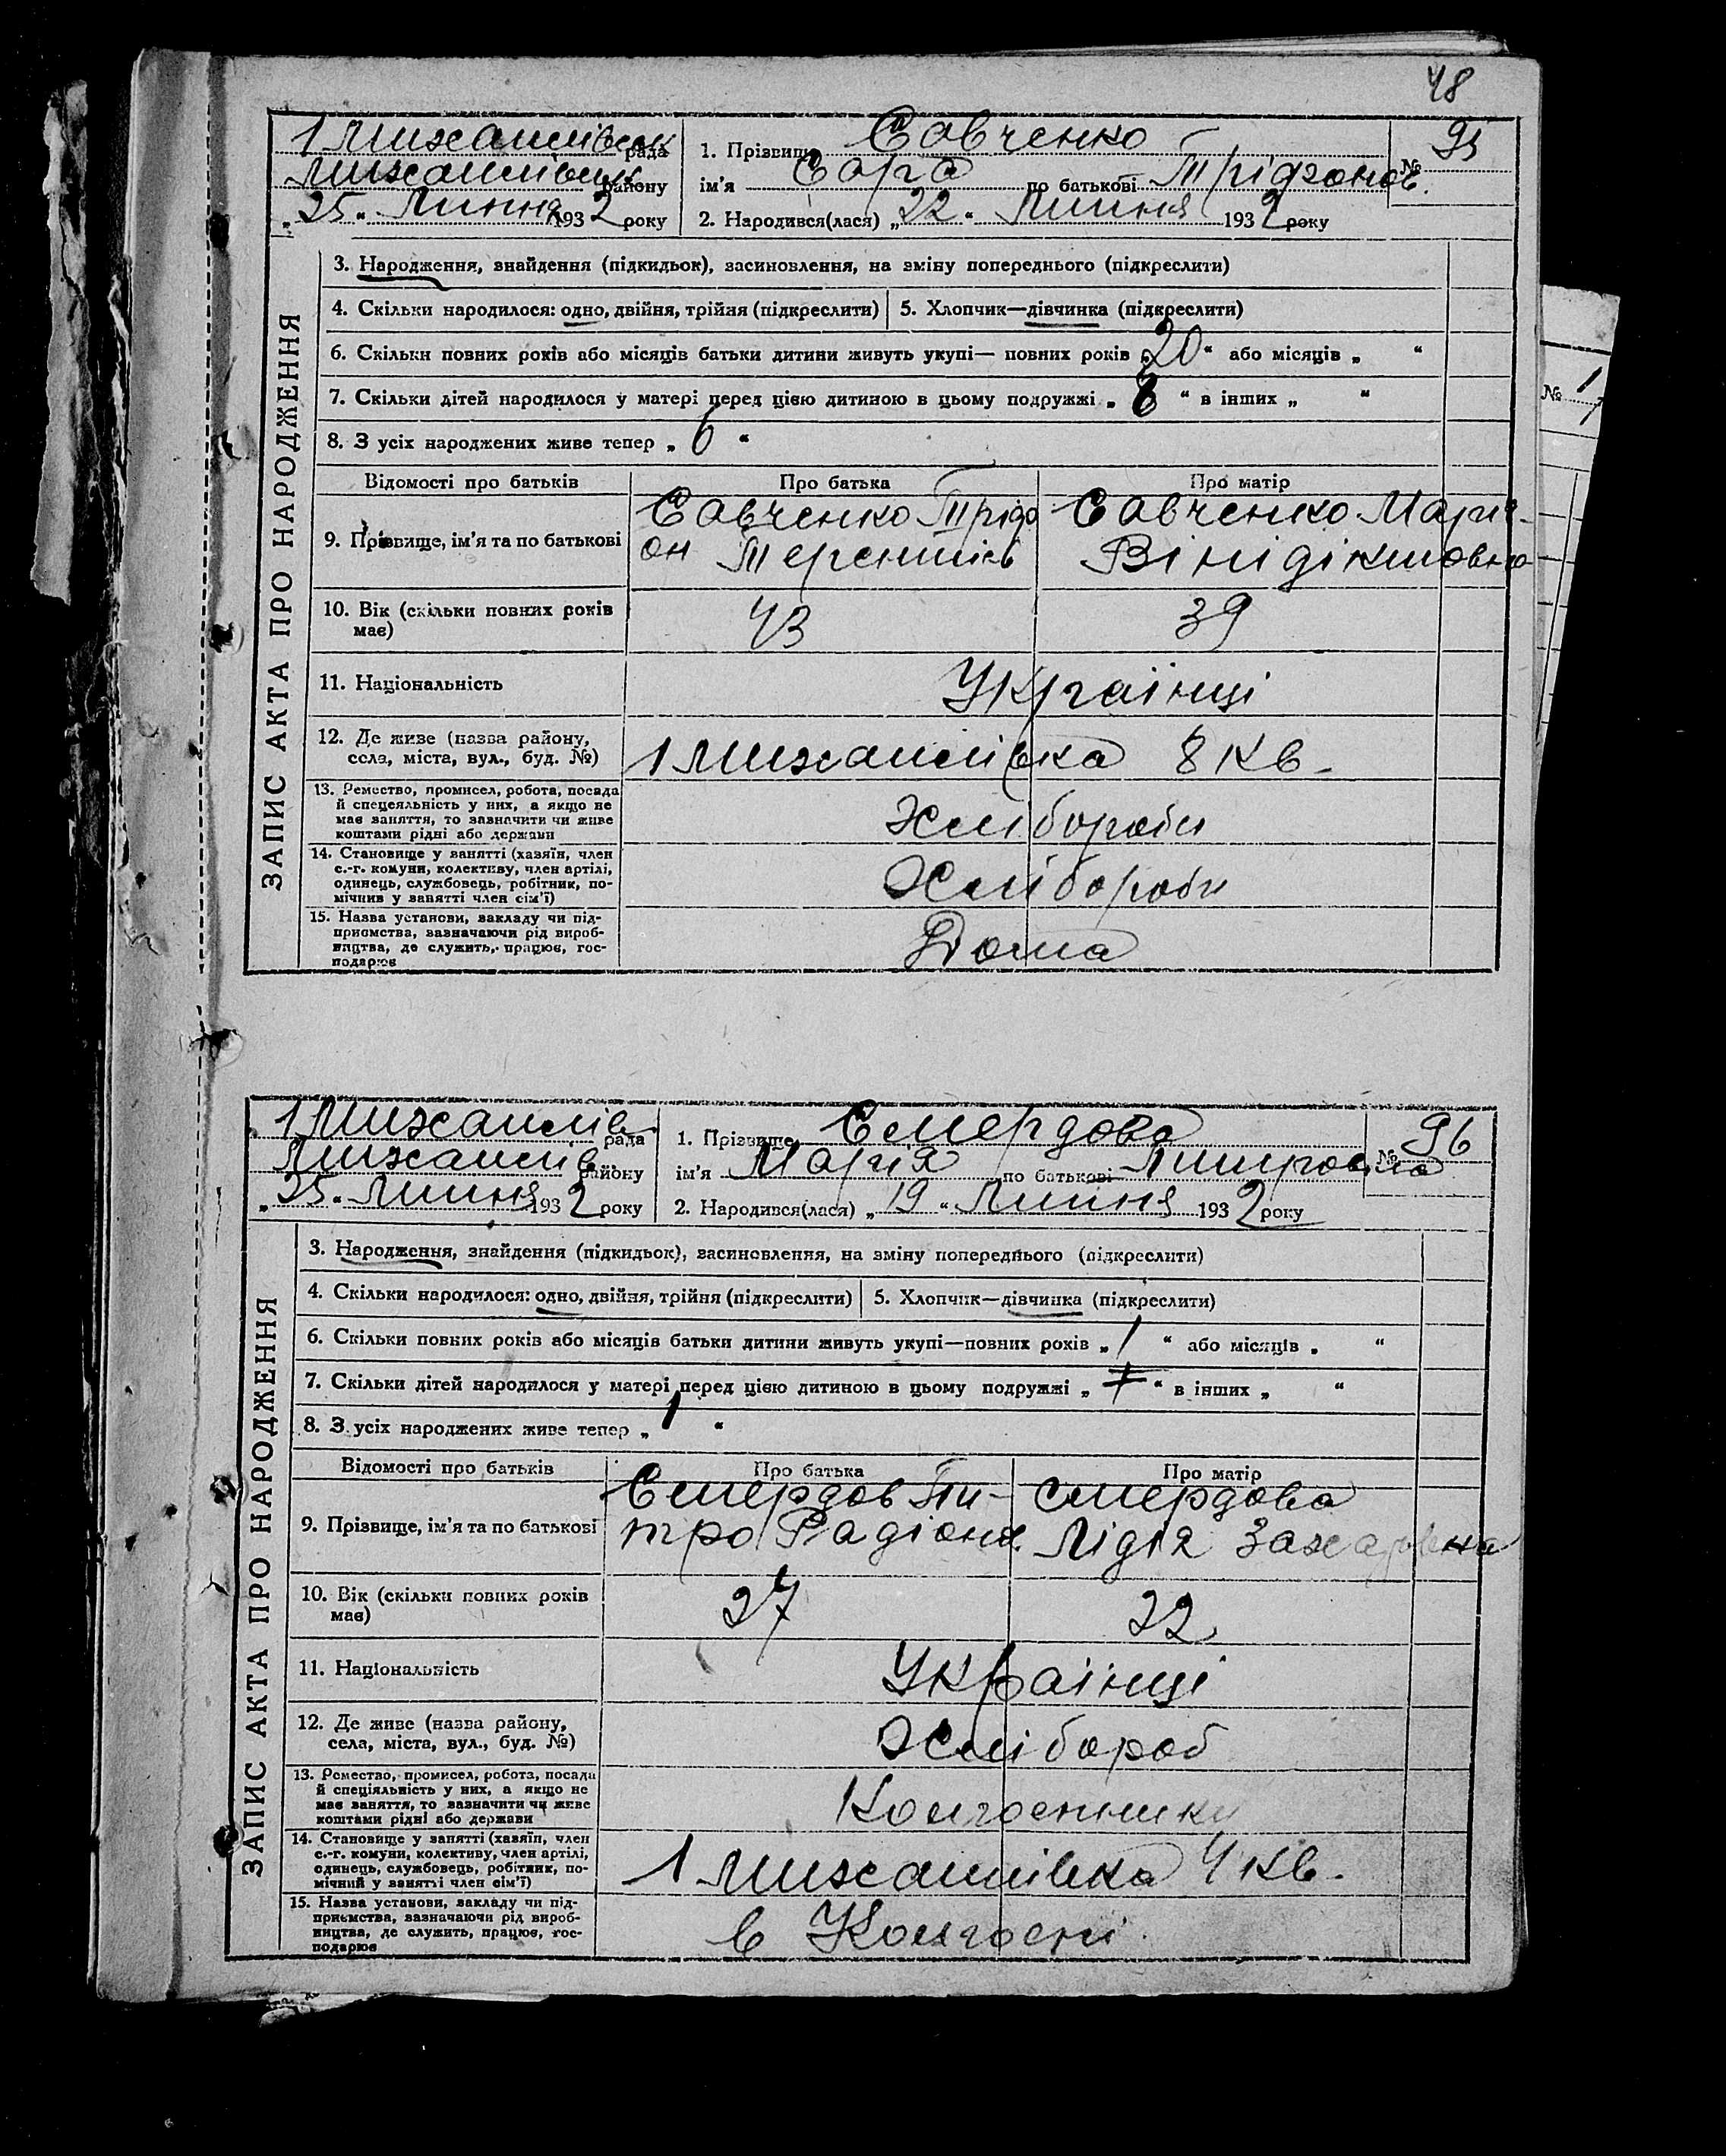 48
1 Михайлівськ рада
Михайлівськ району
„25“ Липня 1932 року
1. Прізвище Савченко
ім'я Сара по батькові Тріфонов.
№ 95
2. Народився(лася) „22“ Липня 1932 року
ЗАПИС АКТА ПРО НАРОДЖЕННЯ
3. Народження, знайдення (підкидьок), засиновлення, на зміну попереднього (підкреслити)
4. Скільки народилося: одно, двійня, трійня (підкреслити) 5. Хлопчик—дівчинка (підкреслити)
6. Скільки повних років або місяців батьки дитини живуть укупі— повних років „20“ або місяців „ “
7. Скільки дітей народилося у матері перед цією дитиною в цьому подружжі „8“ в інших „ “
8. З усіх народжених живе тепер „6“
Відомості про батьків Про батька Про матір
9. Прізвище, ім'я та по батькові
Савченко Тріфо
он Терентієв
Савченко Марія
Вінідіктовна
10. Вік (скільки повних років
має)
43 39
11. Національність Українці
12. Де живе (назва району,
села, міста, вул., буд. №)
1 Михайлівка 8 кв.
13. Ремество, промисел, робота, посада
й спецеяльність у них, а якщо не
має заняття, то зазначити чи живе
коштами рідні або держави
Хлібороби
14. Становище у занятті (хазяїн, член
с.-г. комуни, колективу, член артілі,
одинець, службовець, робітник, по-
мічник у занятті член сім'ї)
Хлібороби
15. Назва установи, закладу чи під-
приємства, зазначаючи рід вироб-
ництва, де служить, працює, гос-
подарює
Дома
1 Михайлів рада
Михайлів району
„25“ Липня 1932 року
1. Прізвище Смердова
ім'я Марія по батькові
№ 96
2. Народився(лася) „19“ Липня 1932 року
ЗАПИС АКТА ПРО НАРОДЖЕННЯ
3. Народження, знайдення (підкидьок), засиновлення, на зміну попереднього (підкреслити)
4. Скільки народилося: одно, двійня, трійня (підкреслити) 5. Хлопчик—дівчинка (підкреслити)
6. Скільки повних років або місяців батьки дитини живуть укупі—повних років „1“ або місяців „ “
7. Скільки дітей народилося у матері перед цією дитиною в цьому подружжі „ “ в інших „ “
8. З усіх народжених живе тепер „1“
Відомості про батьків Про батька Про матір
9. Прізвище, ім'я та по батькові
Смердов Пи-
тро Радіонов
Смердова
Лідія Захаровна
10. Вік (скільки повних років
має)
27 22
11. Національність Українці
12. Де живе (назва району,
села, міста, вул., буд. №)
Хлібороб
13. Ремество, промисел, робота, посада
й спеціяльність у них, а якщо не
має заняття, то зазначити чи живе
коштами рідні або держави
Колгоспники
14. Становище у занятті (хазяїн, член
с.-г. комуни, колективу, член артілі,
одинець, службовець, робітник, по-
мічний у занятті член сім'ї)
1 Михайлівка 4 кв.
15. Назва установи, закладу чи під-
приємства, зазначаючи рід вироб-
ництва, де служить, працює, гос-
подарює
в Колгоспі
№ 1